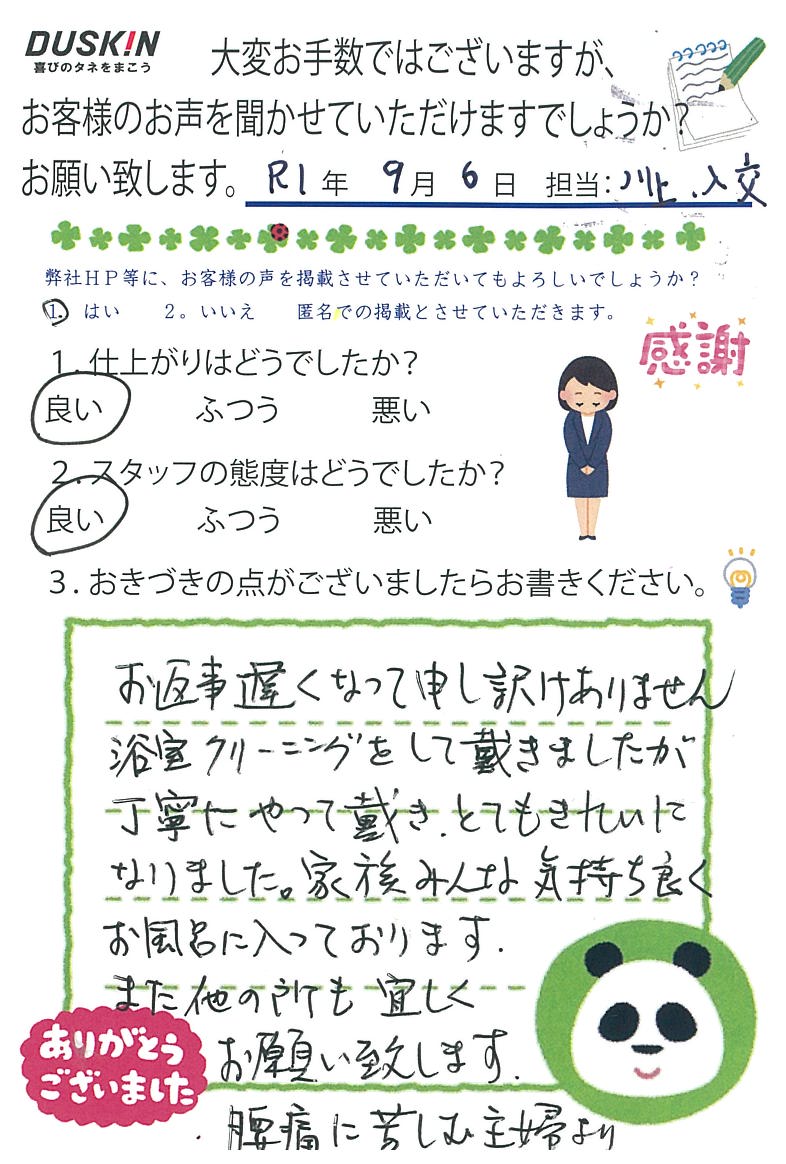 DUSK!N
喜びのタネをまこう
大変お手数ではございますが、
お客様のお声を聞かせていただけますでしょうか?
お願い致します。 R1年 9月 6日 担当:川上、入交
弊社HP等に、お客様の声を掲載させていただいてもよろしいでしょうか?
1. はい 2。いいえ 匿名での掲載とさせていただきます。
感謝
1.仕上がりはどうでしたか?
良い ふつう 悪い
2.スタッフの態度はどうでしたか?
良い ふつう 悪い
3.おきづきの点がございましたらお書きください。
お返事遅くなって申し訳けありません
浴室クリーニングをして戴きましたが
丁寧にやって戴き、とてもきれいに
なりました。家族みんな気持ち良く
お風呂に入っております.
また他の所も宜しく
お願い致します.
ありがとう
ございました
腰痛に苦しむ主婦より